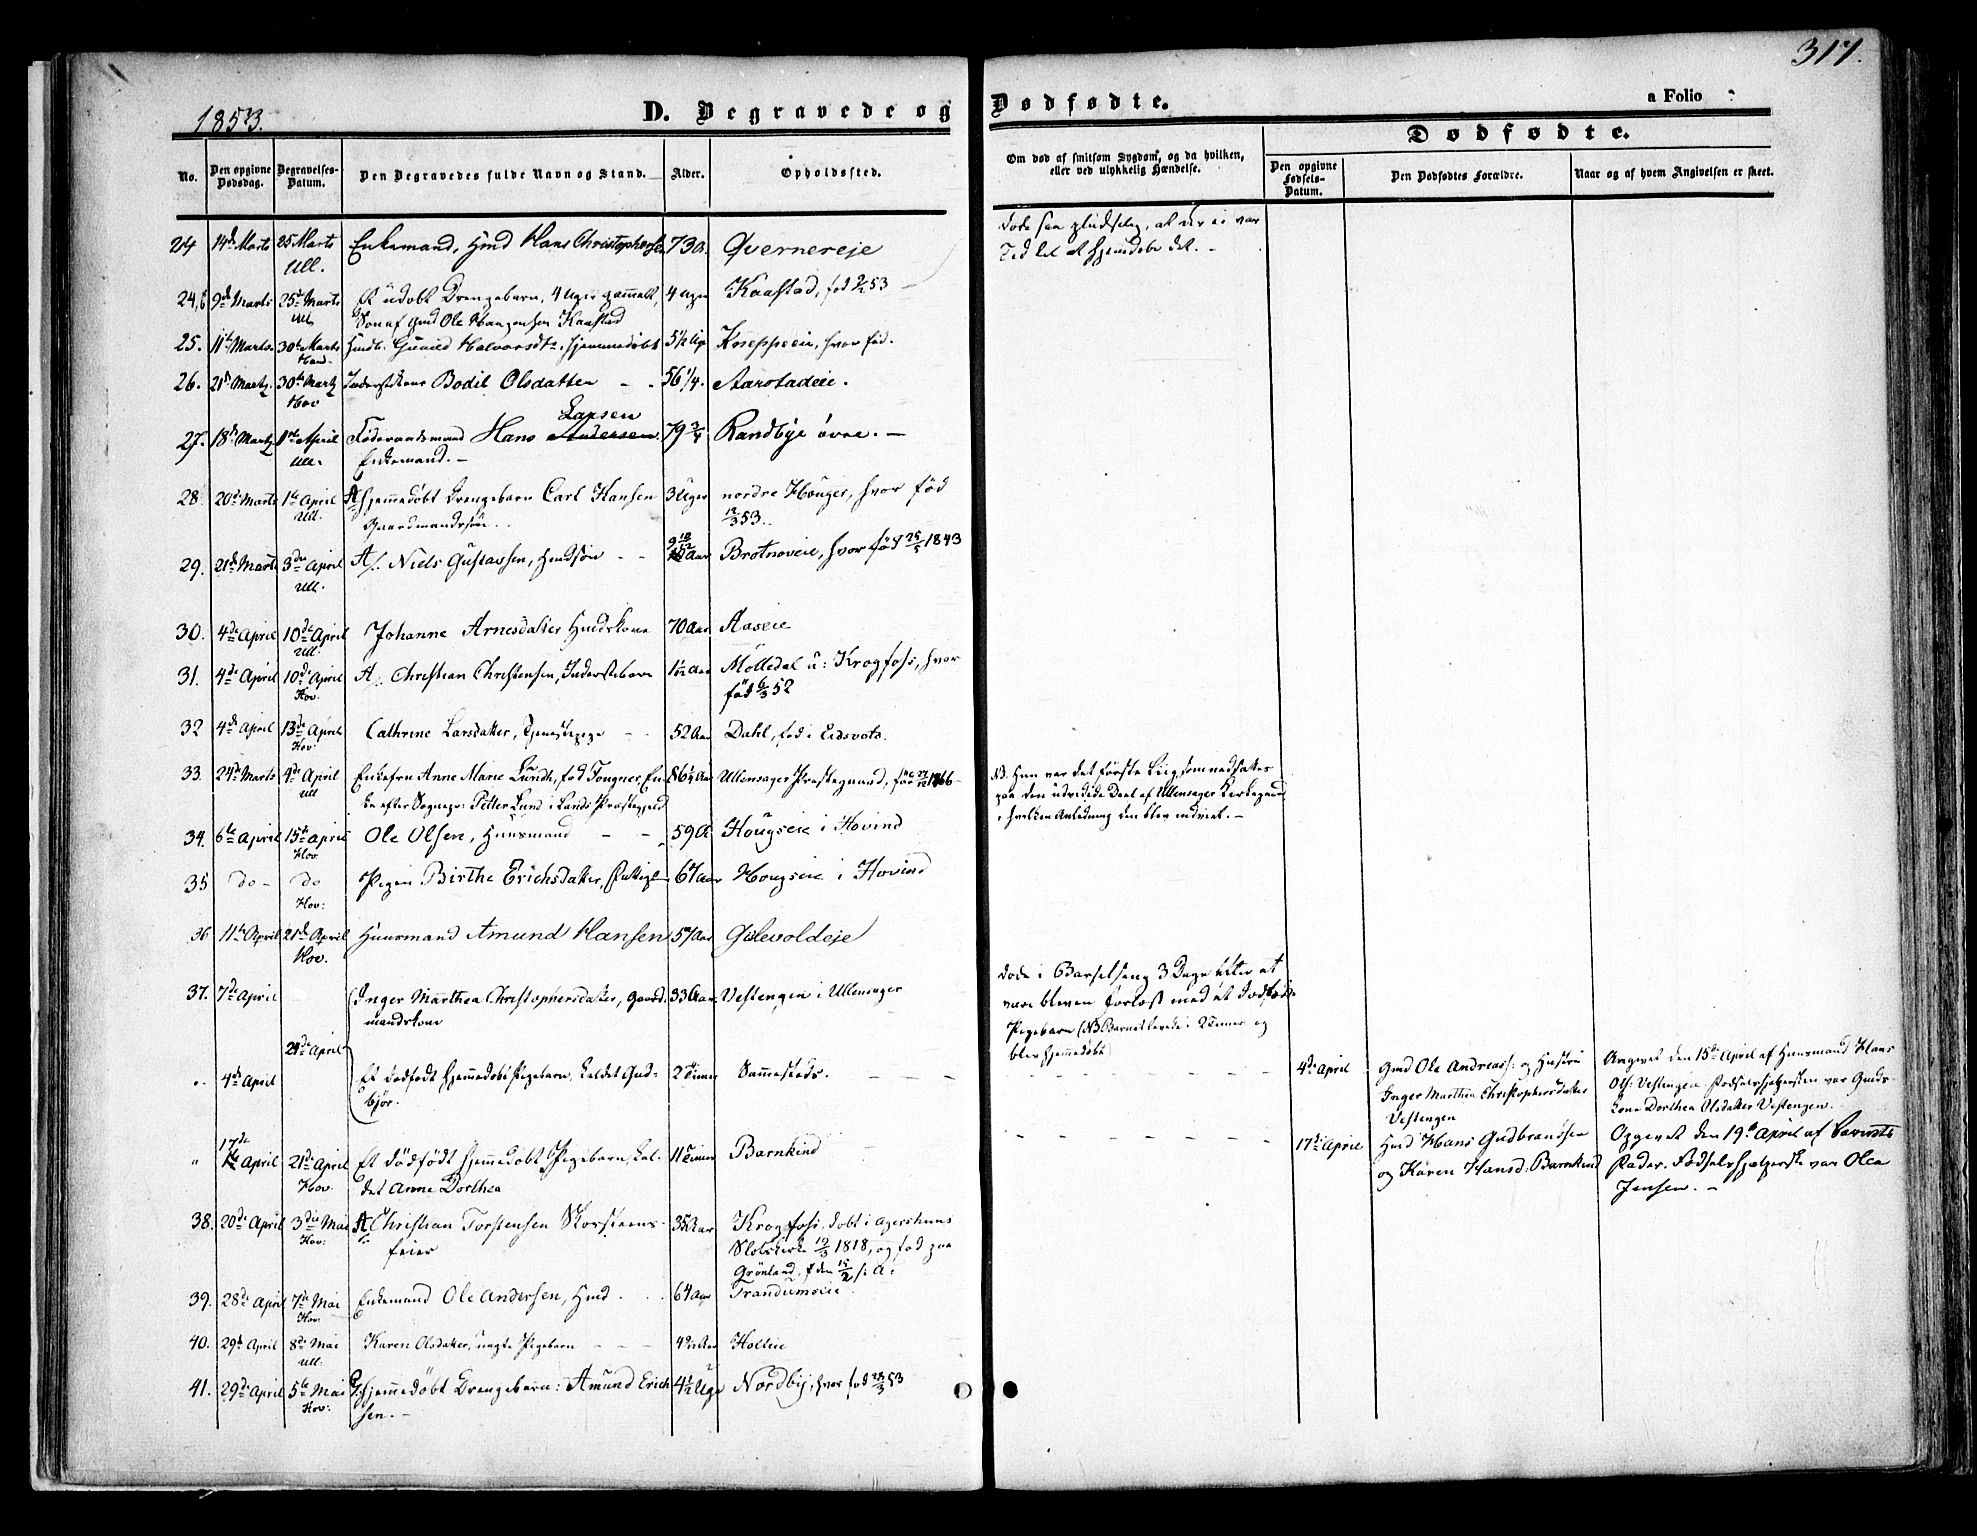 317.
1853.
D. Begravede og Dødfødte.
a Folio
No.
Den opgivne Dødsdag.
Begravelses-Datum.
Den Begravedes fulde Navn og Stand.
Alder.
Opholdssted.
Om død af smitsom Sygdom, og da hvilken,
eller ved ulykkelig Hændelse.
Dødfødte.
Den opgivne Fødsels-Datum.
Den Dødfødtes Forældre.
Naar og af hvem Angivelsen er skeet.
24 14de Marts 25 Marts Enkemand, Hmd Hans Christophersen 73 A. Qvernereje
Ull.
Døde saa pludselig, at der ei var
Tid til at hjemdøbe det. -
24,b 9de Marts 25de Marts Et udøbt Drengebarn, 4 Uger gammelt, 4 Uger Kaastad, fød 9/2 53
Ull. Søn af Gmd Ole Haagensen Kaastad
25. 11te Marts 30te Marts Gunild Halvorsdtr. hjemmedøbt 5 1/2 Kneppeeie, hvor fød.
Hov.
26. 21de Marts 30te Marts Inderstkone Bodil Olsdatter - - 56 1/4. Aarstadeie.
Hov
Larsen
27. 18de Marts 1ste April Føderaadsmand Hans Andersen. 79 3/4 Randbye övre. -
Ull. Enkemand. -
28. 20de Marts 1ste April A/ hjemmedøbt Drengebarn Carl Hansen 3 Uger nordre Houger, hvor fød
Ull. Gaardmandssøn 12/3 53.
29. 21de Marts 3die April A/: Niels Gustavsen, Hmdsøn - - 9 10/12 Aar Brotnoveie, hvor fød 25/5 1843
Ull.
30. 4de April 10de April Johanne Arnesdatter Hmdskone 70 Aar Aaseie
Ull.
31. 4de April 10de April A/: Christian Christensen, Inderstebarn 1 1/12 Aar Mölledal u: Krogfoss, hvor
Hov. fød 6/3 52
32 4de April 13de April Cathrine Larsdatter, Tjenestepige - - 52 Aar Dahl, fød i Eidsvold.
Hov.
33. 24de Marts 4de April Enkefru Anne Marie Lund, fød Fougner, En- 86 1/4 Aar Ullensager Præstegaard, fød 1766-
Ull ke efter Sognepr: Petter Lund i Lands Præstegjeld
NB. Hun var det første Liig, som nedsattes
paa den udvidede Deel af Ullensager Kirkegaard,
i hvilken Anledning den blev indviet. -
34. 6te April 15de April Ole Olsen, Huusmand - - 59 A Hougseie i Hovind
Hov.
35 do - do Pigen Birthe Erichsdatter, 67 Aar Hougseie i Hovind
Hov:
36 11te April 21de April Huusmand Amund Hansen 57 Aar Gulevoldeje
Hov.
37. 7de April Inger Marthea Christophersdatter, Gaard- 33 Aar Vestengen i Ullensager
mandskone
21de April
Døde i Barselseng 3 Dage efter at
være bleven forløst med et dødfødt
Pigebarn (NB. Barnet levede i 2 Timer og
blev hjemmedøbt)
" 4de April Et dødfødt hjemmedøbt Pigebarn, kaldet Gud- 2 Timer Sammesteds. - - -
björ.
4de April Gmd Ole Andreass: og Hustru
Inger Marthea Christophersdatter
Vestengen
Angivet den 15de April af Huusmand Hans
Ols: Vestengen. Fødselshjelpersken var Gmds-
kone Dorthea Olsdatter Vestengen.
" 17de April 21de April Et dödfödt hjemmedøbt Pigebarn, kal- 11 Timer Barnkind
Hov. det Anne Dorthea
17de April Hmd Hans Gudbrandsen
og Karen Hansd: Barnkind
Opgivet den 19de April af Barnets
Fader. Fødselshjelperske var Olea
Jensen. -
38. 20de April 3die Mai A/: Christian Torstensen Skorsteens- 35 Aar Krogfoss, døbt i Agershuus
Hov: feier Slotskirke 19/3 1818, og fød paa
Grönland, f den 15/2 s: A:
39. 28de April 7de Mai Enkemand Ole Andersen, Hmd. 64 Aar Trandumseie
Hov.
40. 29de April 8de Mai Karen Olsdatter, uægte Pigebarn - - - Holteie
Ull.
41. 29de April 5te Mai hjemmedøbt Drengebarn: Amund Erich- 4 1/2 Uge Nordby, hvor fød 28/3 53
Hov: sen. -